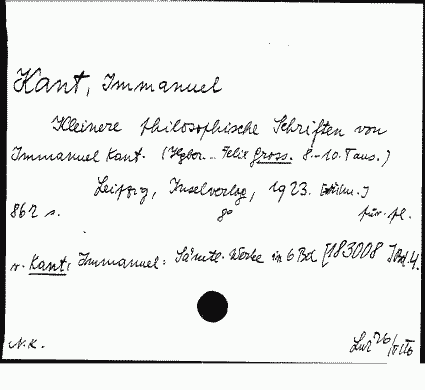 Kant, Immanuel
Kleinere philosophische Schriften von
Immanuel Kant. (Hgbr... Felix Gross. 8.-10. Taus.)
Leipzig, Inselverlag, 1923.
862 s. 8°
v. Kant, Immanuel: Sämtl. Werke in 6 Bd [183008] Bd 4.
N.K.